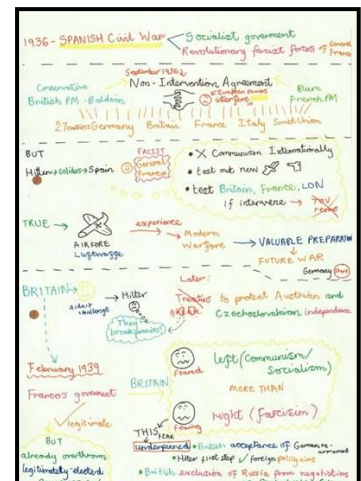 1936 - SPANISH Civil War
Socialist government
Revolutionary facist forces of General
Franco
September 1936
Non-Intervention Agreement
Conservative
British PM - Baldwin
Blum
French PM
27 Germany Britain France Italy Soviet Union
BUT
Hitler → soldiers → Spain
FACIST
General
Franco
• X Communism Internationally
• test out new
• test Britain, France, LON
if intervene →
TRUE →
AIRFORE
Luftwaffe
experience
Modern
Warfare
→ VALUABLE PREPARATION
FUTURE WAR
Germany
BRITAIN →
didn't
challenge
→ Hitler
They
break promises
Later:
Treaties to protect Austrian and
BREAK
Czechozlovakian independence
February 1939
Franco's goverment
legitimate
BUT
already overthrown
legitimately-elected
BRITAIN
feared
left (Communism/
Socialism)
MORE THAN
right (fascisim)
fearing
THIS FEAR
underpined
• British acceptance of German re-armament
• Hitler first step ✓ foreign policy aims
• British exclusion of Russia from negotiations